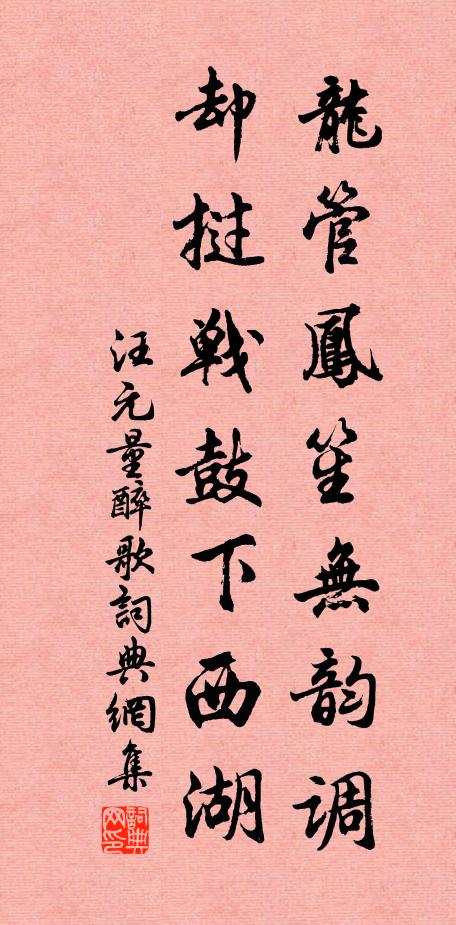 龍管鳳笙無韵调
却撻戰鼓下西湖
汪元量醉歌詞典網集
詞典网印